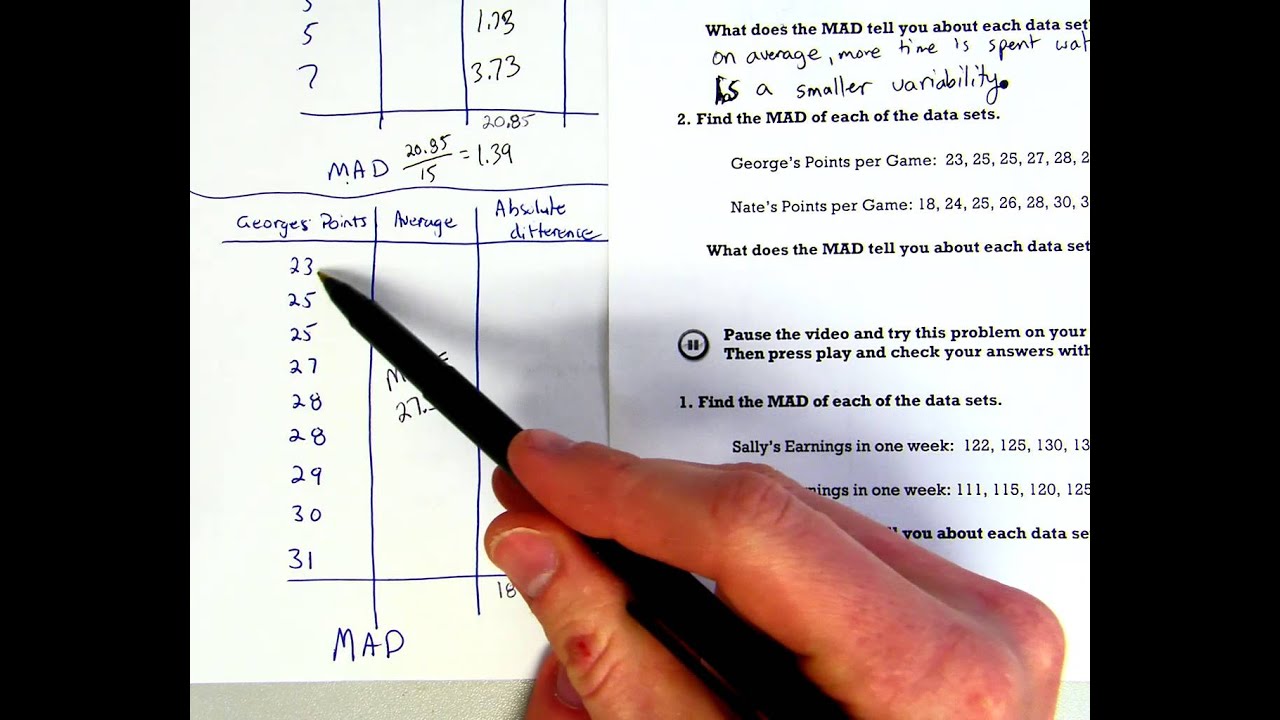 5 1.73
7 3.73
20.85
MAD 20.85/15 = 1.39
Georges' Points Average Absolute difference
23
25
25
27
28
28
29
30
31
27.
18
MAD
What does the MAD tell you about each data set
on average, more time is spent wat
is a smaller variability.
2. Find the MAD of each of the data sets.
George's Points per Game: 23, 25, 25, 27, 28, 2
Nate's Points per Game: 18, 24, 25, 26, 28, 30, 3
What does the MAD tell you about each data set
Pause the video and try this problem on your
Then press play and check your answers with
1. Find the MAD of each of the data sets.
Sally's Earnings in one week: 122, 125, 130, 13
nings in one week: 111, 115, 120, 125
you about each data se